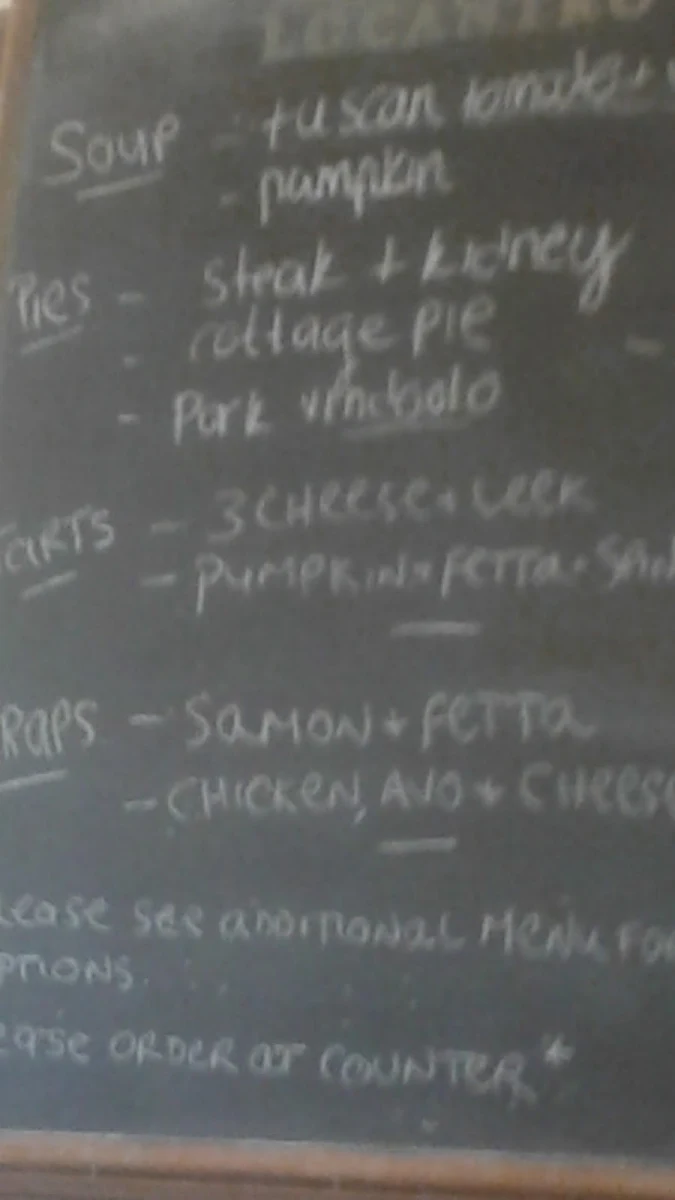 LOCANTRO
Soup - tuscan tomato +
- pumpkin
Pies - steak + kidney
- cottage pie -
- Pork vindaolo
TARTS - 3 CHEESE + LEEK
- PUMPKIN + FETTA +
RAPS - SAMON + FETTA
- CHICKEN, AVO + CHEESE
LEASE SEE ADDITIONAL MENU FOR
PTIONS.
EASE ORDER AT COUNTER *